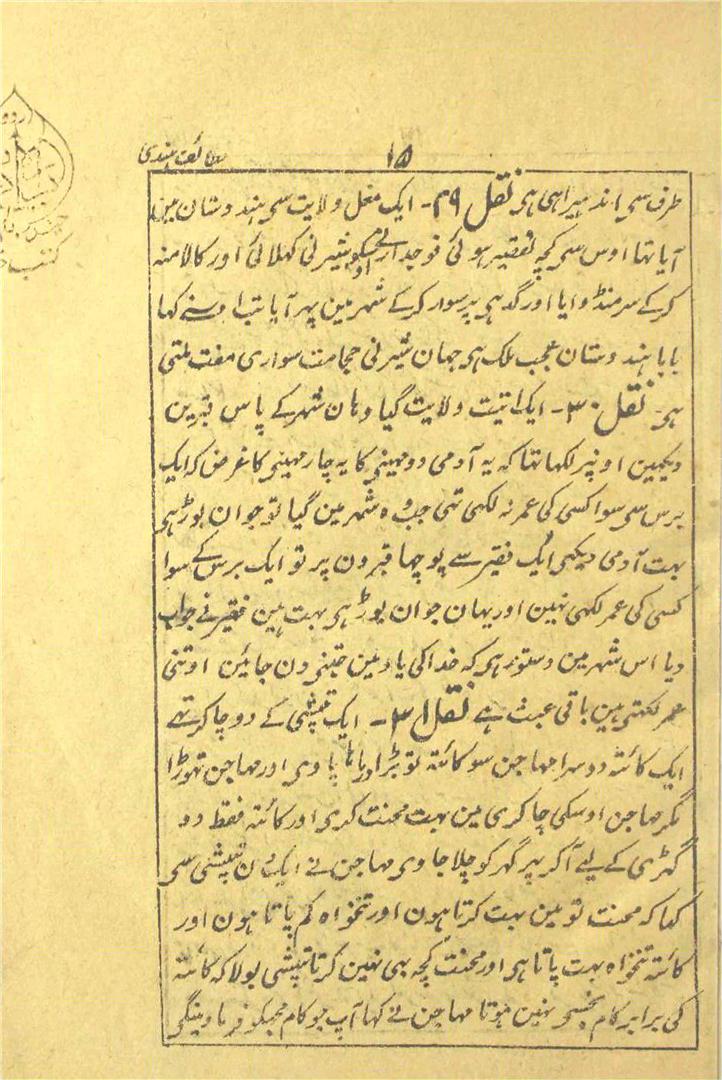 ۱۵
لطائف ہندی
طرف سی اندہیراہی ہی نقل ۲۹- ایک مغل ولایت سی ہندوستان مین
آیا تہا اوس سی کچہ تقصیر ہوئی فوجدار نے اوسکو شیرنی کہلائی اور کالا منہ
کرکے سر منڈوایا اور گدہی پر سوار کرکے شہر مین پہرایا تب اوسنے کہا
بابا ہندوستان عجب ملک ہی جہان شیرنی حجامت سواری مفت ملتی
ہی- نقل ۳۰- ایک اتیت ولایت گیا وہان شہر کے پاس قبرین
دیکہین اونپر لکہا تہا کہ یہ آدمی دو مہینی کا یہ چار مہینی کا غرض کہ ایک
برس سی سوا کسی کی عمر نہ لکہی تہی جب وہ شہر مین گیا تو جوان بوڑہی
بہت آدمی دیکہی ایک فقیر سے پوچہا قبرون پر تو ایک برس کے سوا
کسی کی عمر لکہی نہین اور یہان جوان بوڑہی بہت ہین فقیر نے جواب
دیا اس شہر مین دستور ہی کہ خدا کی یاد مین جتنی دن جائین اوتنی
عمر لکہتی ہین باقی عبث ہے نقل ۳۱- ایک تپشی کے دو چاکر تہے
ایک کائتہ دوسرا مہاجن سو کائتہ تو بڑا درماہا پاوی اور مہاجن تہوڑا
مگر مہاجن اوسکی چاکری مین بہت محنت کری اور کائتہ فقط دو
گہڑی کے لیے آکر پہر گہر کو چلا جاوی مہاجن نے ایکدن تپشی سی
کہا کہ محنت تو مین بہت کرتا ہون اور تنخواہ کم پاتا ہون اور
کائتہ تنخواہ بہت پاتا ہی اور محنت کچہ بہی نہین کرتا تپشی بولا کہ کائتہ
کی برابر کام تجسی نہین ہوتا مہاجن نے کہا آپ جو کام مجہکو فرماوینگی